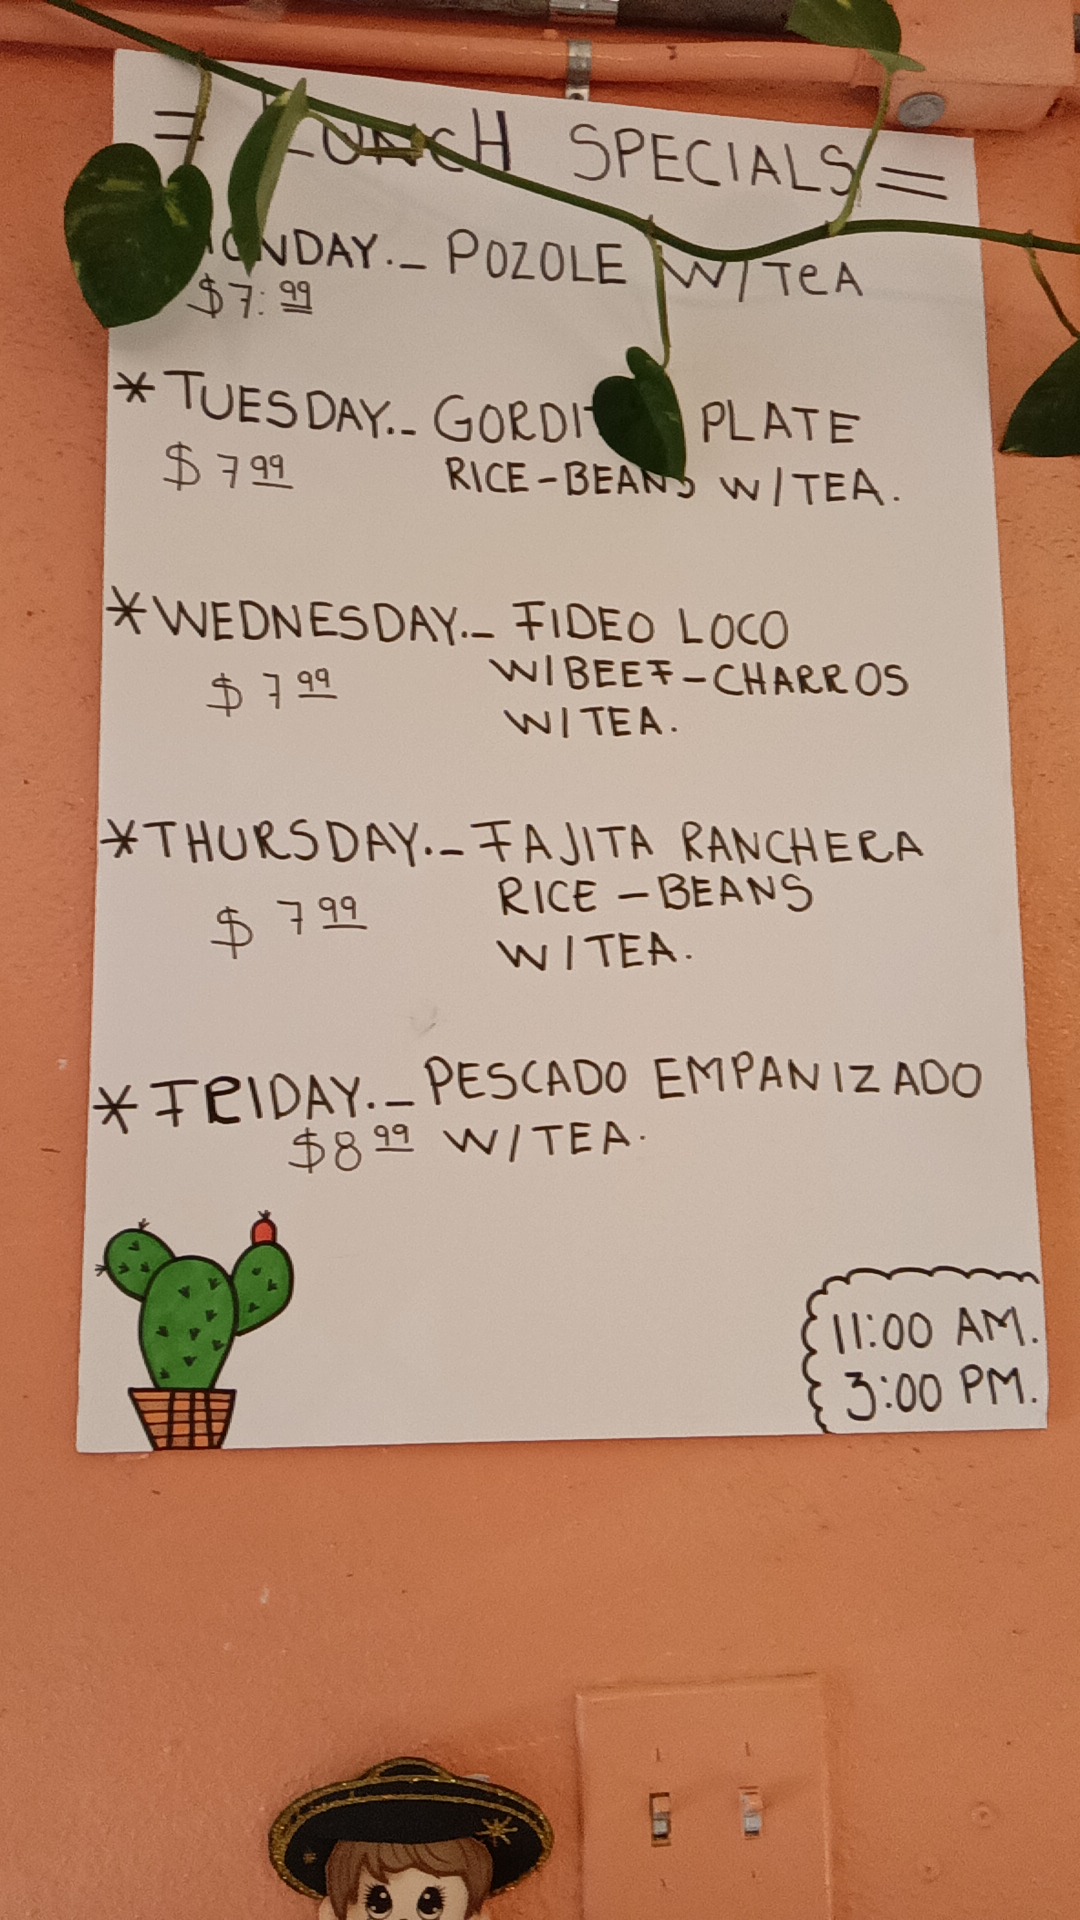 = LUNCH SPECIALS =
MONDAY._ POZOLE W/TEA
$7.99
*TUESDAY._ PLATE
$7 99 RICE-BEANS W/TEA.
*WEDNESDAY._ FIDEO LOCO
W/BEEF-CHARROS
$7 99
W/TEA.
*THURSDAY._ FAJITA RANCHERA
RICE - BEANS
$7 99
W/TEA.
*FRIDAY._ PESCADO EMPANIZADO
$8 99 W/TEA.
11:00 AM.
3:00 PM.